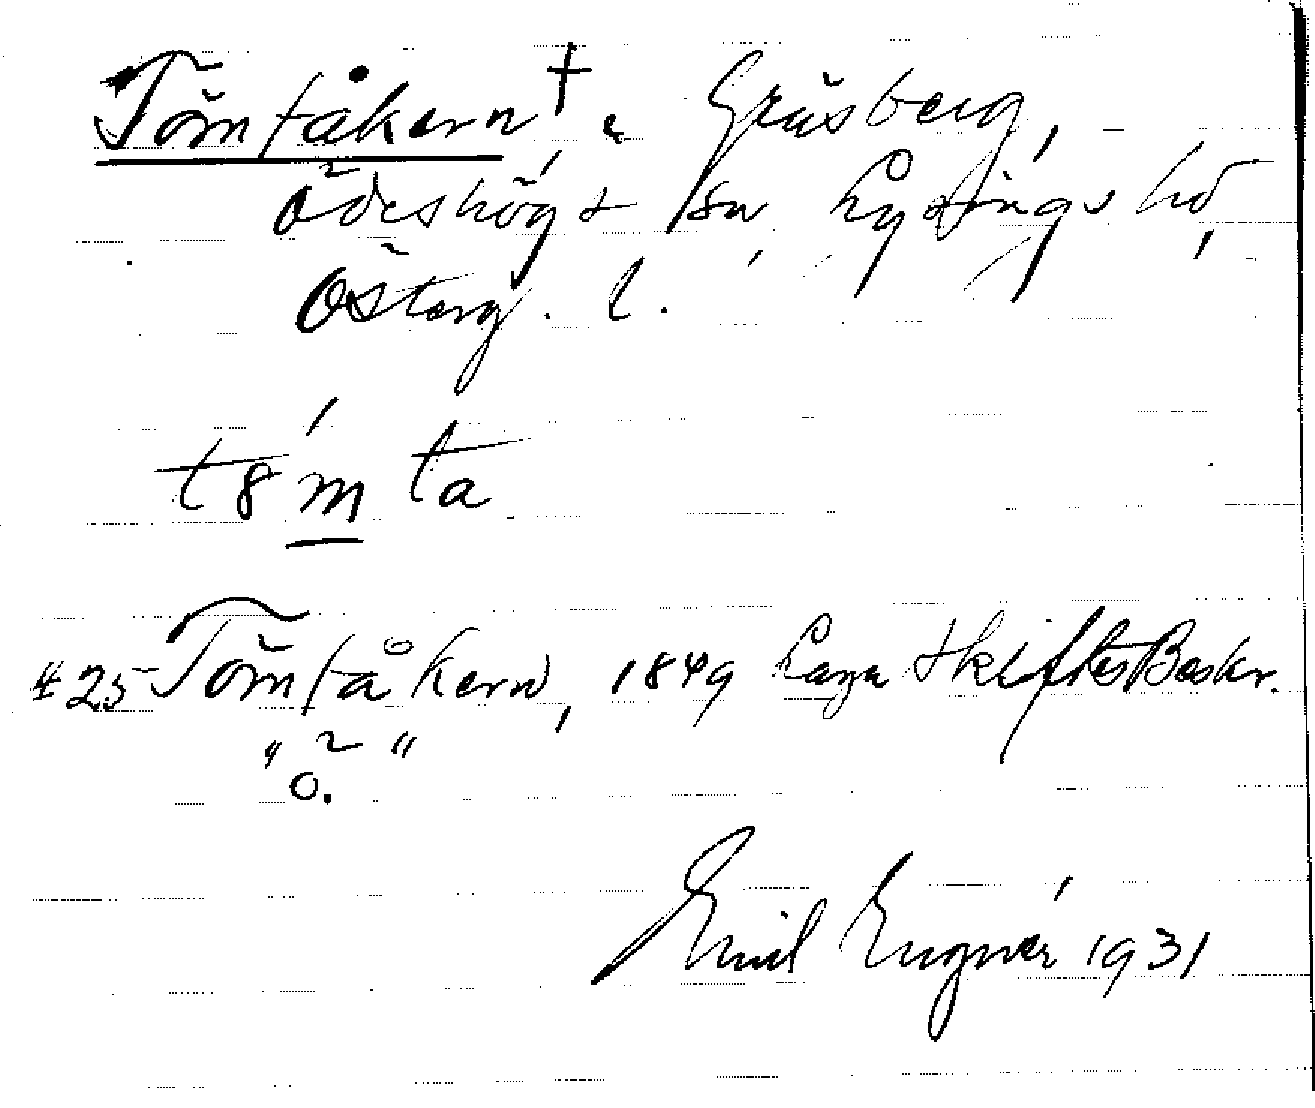 Tömtåkern †, Gråsberg,
Ödeshögs sn, Lysings hd,
Österg. l.
t8mta
#25 Tömtåkern, 1849 Laga SkiftesBeskr.
" ö. "
Emil Engnér 1931